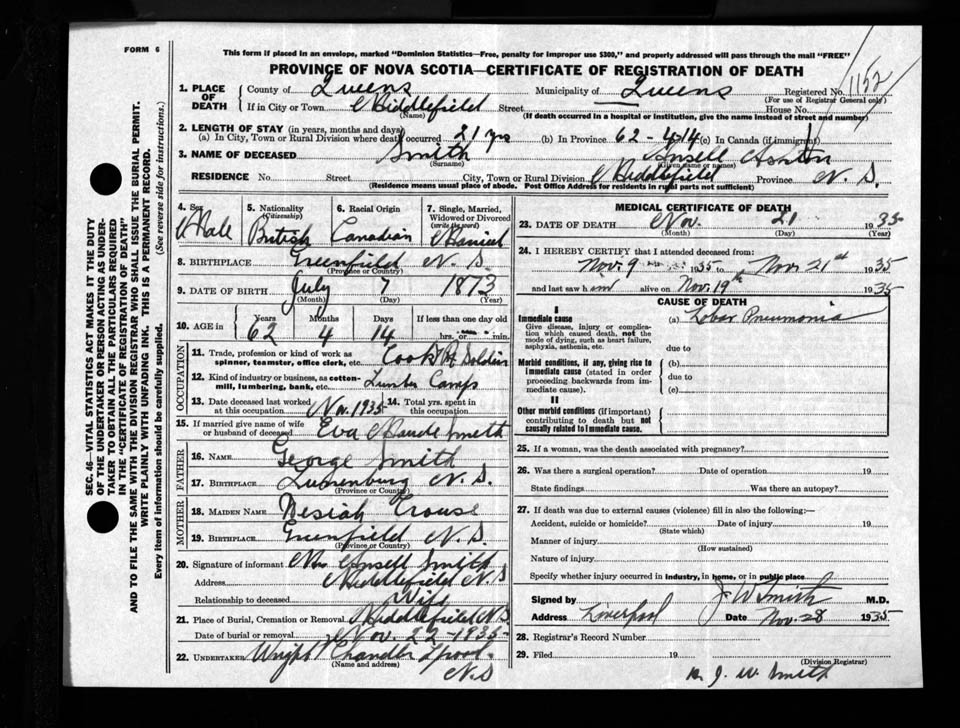 FORM 6
This form if placed in an envelope, marked "Dominion Statistics—Free, penalty for improper use $300," and properly addressed will pass through the mail "FREE"
PROVINCE OF NOVA SCOTIA—CERTIFICATE OF REGISTRATION OF DEATH
SEC. 46—VITAL STATISTICS ACT MAKES IT THE DUTY
OF THE UNDERTAKER OR PERSON ACTING AS UNDER-
TAKER TO OBTAIN ALL THE PARTICULARS REQUIRED
IN THE "CERTIFICATE OF REGISTRATION OF DEATH"
AND TO FILE THE SAME WITH THE DIVISION REGISTRAR WHO SHALL ISSUE THE BURIAL PERMIT.
WRITE PLAINLY WITH UNFADING INK. THIS IS A PERMANENT RECORD.
Every item of information should be carefully supplied. (See reverse side for instructions.)
1. PLACE OF DEATH { County of Queens Municipality of Queens Registered No. 1152
(For use of Registrar General only)
If in City or Town Middlefield Street House No.
(Name) (If death occurred in a hospital or institution, give the name instead of street and number)
2. LENGTH OF STAY (in years, months and days)
(a) In City, Town or Rural Division where death occurred 21 yrs (b) In Province 62-4-14 (c) In Canada (if immigrant)
3. NAME OF DECEASED Smith Ansell Ashton
(Surname) (Given name or names)
RESIDENCE No. Street City, Town or Rural Division Middlefield Province N. S.
(Residence means usual place of abode. Post Office Address for residents in rural parts not sufficient)
4. Sex 5. Nationality (Citizenship) 6. Racial Origin 7. Single, Married, Widowed or Divorced (write the word)
Male British Canadian Married
8. BIRTHPLACE Greenfield N. S.
(Province or Country)
9. DATE OF BIRTH July 7 1873
(Month) (Day) (Year)
10. AGE in Years Months Days If less than one day old
62 4 14 hrs. or min.
OCCUPATION
11. Trade, profession or kind of work as spinner, teamster, office clerk, etc. Cook
12. Kind of industry or business, as cotton-mill, lumbering, bank, etc. Lumber Camps
13. Date deceased last worked at this occupation Nov. 1935 14. Total yrs. spent in this occupation
15. If married give name of wife or husband of deceased Eva Maude Smith
FATHER
16. NAME George Smith
17. BIRTHPLACE Lunenburg N. S.
(Province or Country)
MOTHER
18. MAIDEN NAME Desiah Crouse
19. BIRTHPLACE Greenfield N. S.
(Province or Country)
20. Signature of informant Mrs Ansell Smith
Address Middlefield N S
Relationship to deceased Wife
21. Place of Burial, Cremation or Removal Middlefield N S
Date of burial or removal Nov. 22-1935
22. UNDERTAKER Wright Chandler L'pool.
(Name and address)
N.S
MEDICAL CERTIFICATE OF DEATH
23. DATE OF DEATH Nov. 21 1935
(Month) (Day) (Year)
24. I HEREBY CERTIFY that I attended deceased from:
Nov. 9 1935 to Nov. 21st 1935
and last saw him alive on Nov. 19th 1935
CAUSE OF DEATH
I
Immediate cause (a) Lobar Pneumonia
Give disease, injury or complication which caused death, not the mode of dying, such as heart failure, asphyxia, asthenia, etc.
due to
Morbid conditions, if any, giving rise to immediate cause (stated in order proceeding backwards from immediate cause). (b)
due to
(c)
II
Other morbid conditions (if important) contributing to death but not causally related to immediate cause.
25. If a woman, was the death associated with pregnancy?
26. Was there a surgical operation? Date of operation 19
State findings Was there an autopsy?
27. If death was due to external causes (violence) fill in also the following:—
Accident, suicide or homicide? Date of injury 19
(State which)
Manner of injury
(How sustained)
Nature of injury
Specify whether injury occurred in industry, in home, or in public place
Signed by J W Smith M.D.
Address Liverpool Date Nov. 28 1935
28. Registrar's Record Number
29. Filed 19
(Division Registrar)
J. W. Smith